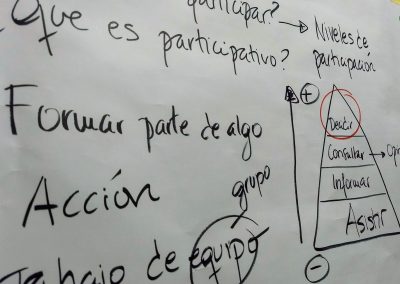 participar? → Niveles de
¿Que es participativo? participación
Formar parte de algo
Acción
grupo
Trabajo de equipo
+
Decidir
Consultar →
Informar
Asistir
−